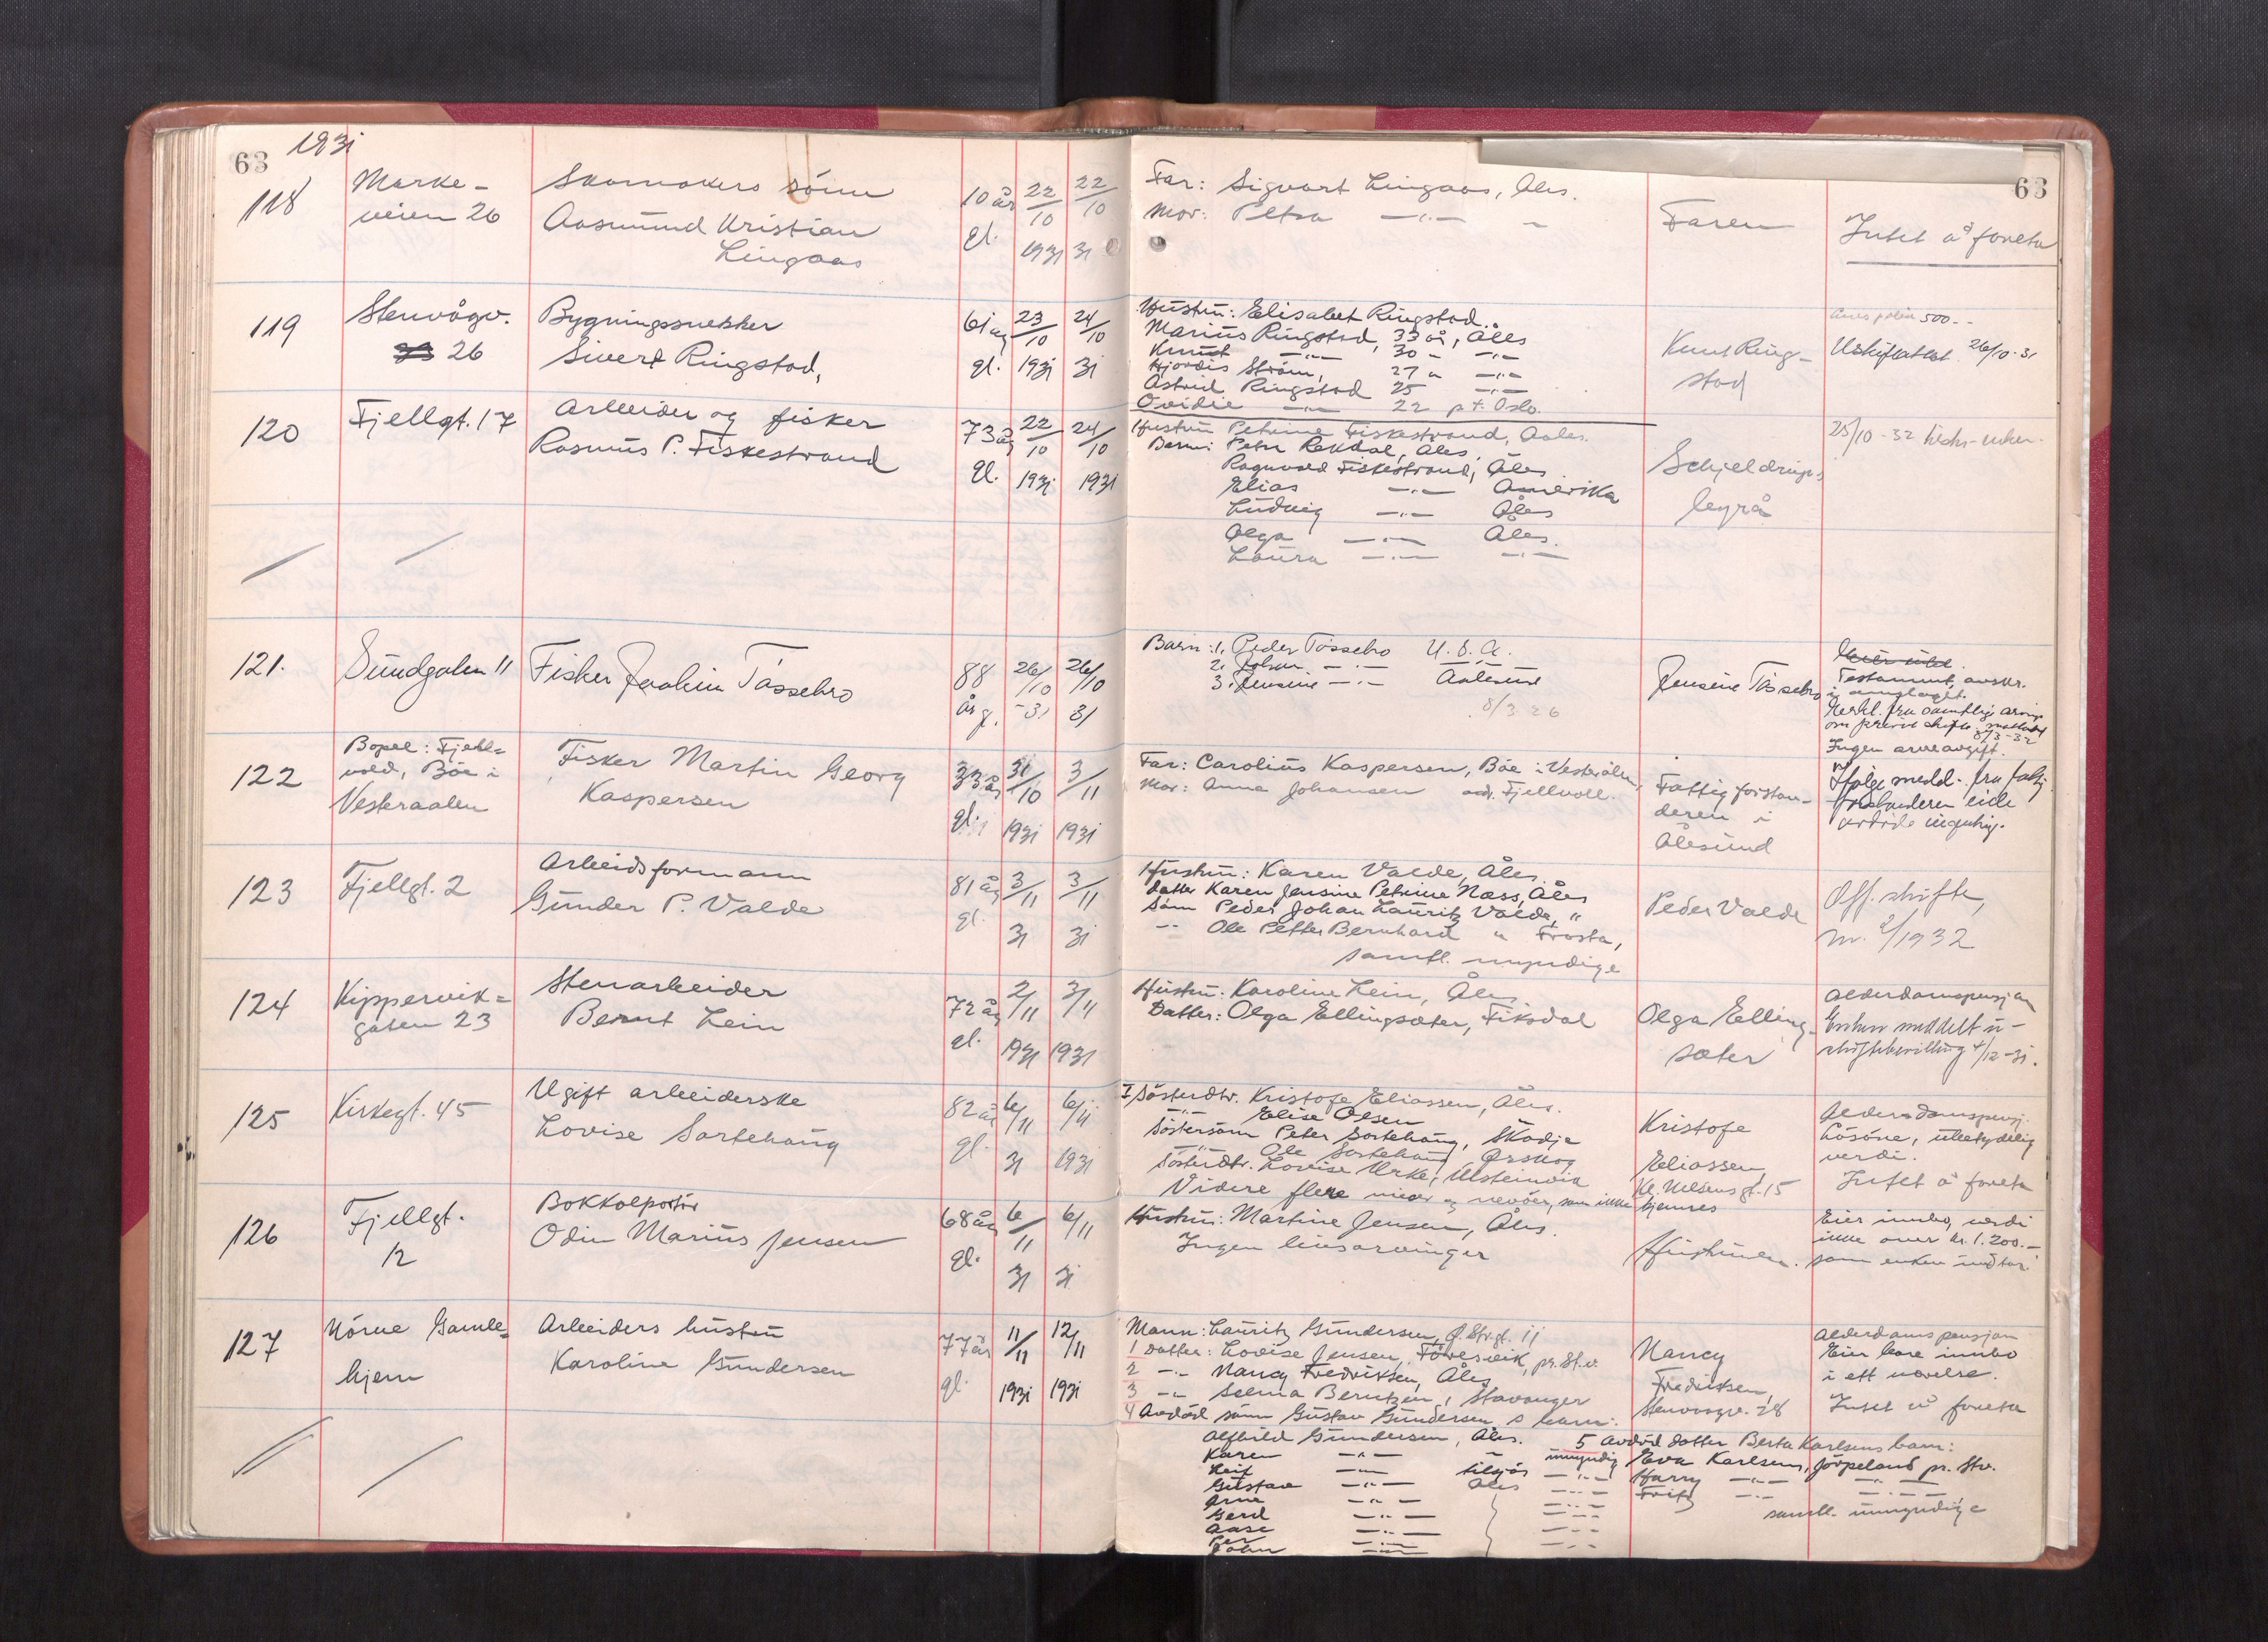 63 1931
118
Marke-
veien 26
Skomakers sönn
Aasmund Kristian
Lingaas
10 år
gl.
22/10
1931
22/10
31
Far: Sigvart Lingaas, Åles.
Mor: Petra —"— –
Faren
63
Intet å foreta
119
Stenvågv.
26
Bygningssnekker
Sivert Ringstad,
61 år
gl.
23/10
1931
24/10
31
Hustru: Elisabet Ringstad.
Marius Ringstad, 33 år, Åles
Knut —"— 30 – —"—
Hjördis Ström, 27 " —"—
Astrid Ringstad 25 —"—
Ovidie —"— 22 p.t. Oslo.
Knut Ring-
stad
500.-
Uskiftattest 26/10-31
120
Fjellgt. 17
Arbeider og fisker
Rasmus P. Fiskestrand
73 år
gl.
22/10
1931
24/10
1931
Hustru Petrine Fiskestrand, Aales.
Barn: Petra Rekdal, Åles.
Ragnvald Fiskestrand, Åles
Elias —"— Amerika
Ludvig —"— Åles
Olga —"— Åles.
Laura —"— —"—
Schjeldrups
byrå
25/10-32
121.
Sundgaten 11
Fisker Joakim Tössebro
88
år g.
26/10
-31
26/10
31
Barn: 1, Peder Tössebro U.S.A.
2, Johan —"— —"—
3, Jensine —"— Aalesund
8/3 26
Jensine Tössebro
Testament, avskr.
i omslaget.
Erkl. fra samtlig arvinge
om privat skifte mottatt
8/3-32
Ingen arveavgift.
122
Bopel: Fjell=
vold, Böe i
Vesteraalen
Fisker Martin Georg
Kaspersen
33 år
gl.
31/10
1931
3/11
1931
Far: Carolius Kaspersen, Böe i Vesterålen,
Mor: Anna Johansen adr. Fjellvoll.
Fattigforstan-
deren i
Ålesund
Ifölge medd. fra fattig-
forstanderen eide
avdöde ingenting.
123
Fjellgt. 2
Arbeidsformann
Gunder P. Valde
81 år
gl.
3/11
31
3/11
31
Hustru: Karen Valde, Åles.
Datter Karen Jensine Petrine Næss, Åles
Sönn Peder Johan Lauritz Valde, "
—"— Ole Petter Bernhard " Frosta,
samtl. myndige
Peder Valde
Off. skifte,
nr. 2/1932
124
Kippervik=
gaten 23
Stenarbeider
Bernt Lein
72 år
gl.
2/11
1931
3/11
1931
Hustru: Karoline Lein, Åles.
Datter: Olga Ellingsæter, Fiksdal
Olga Elling-
sæter
Alderdomspensjon
Enken meddelt u-
skiftebevilling 4/12-31.
125
Kirkegt. 45
Ugift arbeiderske
Lovise Sortehaug
82 år
gl.
6/11
31
6/11
1931
I Sösterdtr. Kristofe Eliassen, Åles.
—"— Elise Olsen —"—
Söstersönn Peter Sortehaug, Skodje
—"— Ole Sortehaug Ørskog
Sösterdtr. Lovise Urke, Ulsteinvik
Videre flere niecer og nevöer, som ikke kjennes
Kristofe
Eliassen
Kl. Nilsens gt. 15
Alderdomspensj.
Lösöre, ubetydelig
verdi.
Intet å foreta
126
Fjellgt.
12
Bokkolportör
Odin Marius Jensen
68 år
gl.
6/11
31
6/11
31
Hustru: Martine Jensen, Åles.
Ingen livsarvinger
Hustruen.
Eier innbo, verdi
ikke over kr. 1.200.-
som enken undtar
127
Nörve Gamle=
hjem
Arbeiders hustru
Karoline Gundersen
77 år
gl.
11/11
1931
12/11
1931
Mann: Lauritz Gundersen, Ö. Strgt. 11
1 Datter: Lovise Jensen, Töresvik, pr. St.v.
2 —"— Nancy Fredriksen, Åles
3 —"— Selma Berntzen, Stavanger
4 Avdöd sönn Gustav Gundersen s barn:
Alfhild Gundersen, Åles.
Karen —"— – umyndig
Leif —"— tilsjös —"—
Gustav —"— Åles —"—
Arne —"— —"—
Gerd —"— —"—
Aase —"— —"—
Per —"— —"—
John —"—
Nancy
Fredriksen,
Stenvågv. 28
Alderdomspensjon
Eier bare innbo
i ett værelse.
Intet å foreta
5 Avdöd datter Berta Karlsens barn:
Eva Karlsen, Jörpeland pr. Stv.
Harry —"— —"—
Fritz —"— —"—
samtl. umyndige